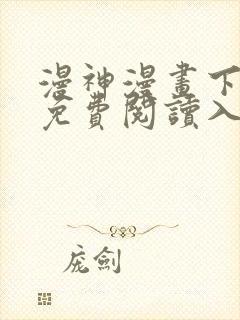 漫神漫畫下
免費閱讀入
庞劍